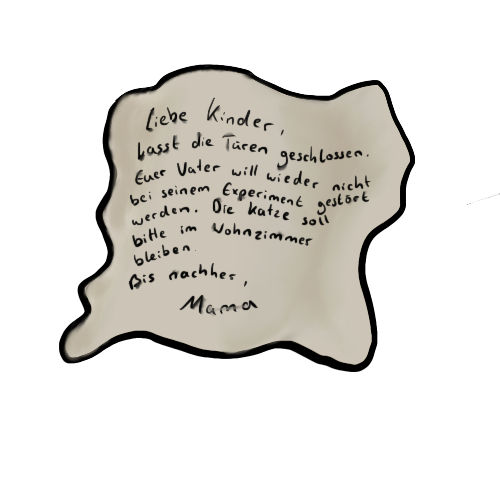 Liebe Kinder,
Lasst die Türen geschlossen.
Euer Vater will wieder nicht
bei seinem Experiment gestört
werden. Die Katze soll
bitte im Wohnzimmer
bleiben.
Bis nachher,
Mama